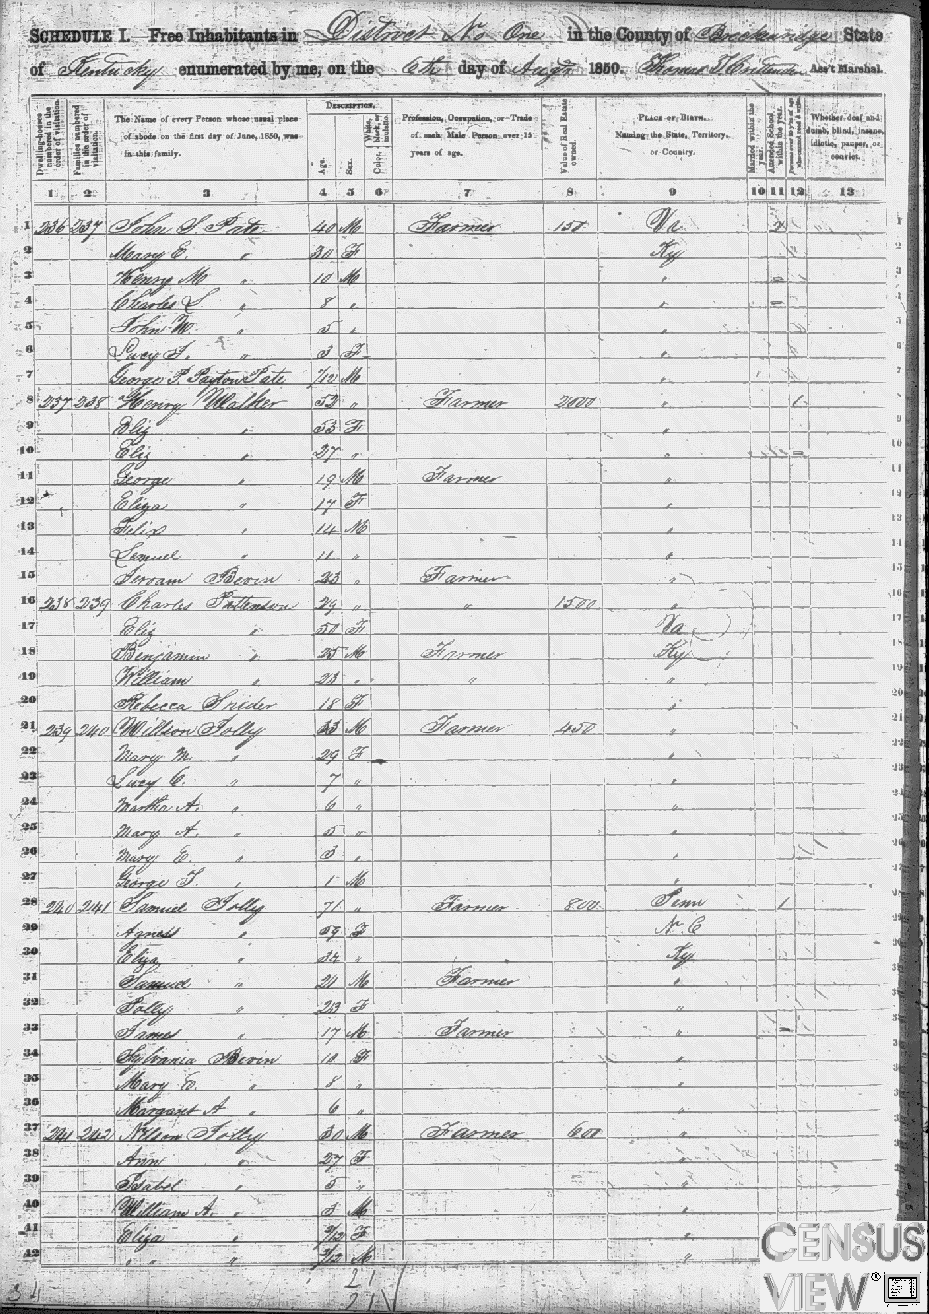 SCHEDULE I. Free Inhabitants in District No One in the County of Breckenridge State
of Kentucky enumerated by me, on the 6th day of Augt 1850. Thomas Ass't Marshal.
DESCRIPTION.
Dwelling-houses numbered in the order of visitation.
Families numbered in the order of visitation.
The Name of every Person whose usual place of abode on the first day of June, 1850, was in this family.
Age.
Sex.
White, black, or mulatto.
Color,
Profession, Occupation, or Trade of each Male Person over 15 years of age.
Value of Real Estate owned.
PLACE OF BIRTH. Naming the State, Territory, or Country.
Married within the year.
Attended School within the year.
Whether deaf and dumb, blind, insane, idiotic, pauper, or convict.
1 2 3 4 5 6 7 8 9 10 11 12 13
1 236 237 John S Pate 40 M Farmer 150 Va 1
2 Mary E. " 30 F Ky 2
3 Henry M " 10 M " 3
4 Charles L " 8 " " 4
5 John W. " 5 " " 5
6 Lucy J. " 3 F " 6
7 George P. Paxton Pate /12 M " 7
8 237 238 Henry Walker 52 " Farmer 2000 " 1 8
9 Eliz " 53 F " 9
10 Eliz " 27 " "
11 George " 19 M Farmer "
12 Eliza " 17 F "
13 Felix " 14 M "
14 Lemuel " 11 " "
15 Bevin 23 " Farmer "
16 238 239 Charles 29 " " 1500 "
17 Eliz " 50 F Va
18 Benjamin " 25 M Farmer Ky
19 William " 23 " " "
20 Rebecca Snider 18 F "
21 239 240 Willson Jolly 33 M Farmer 450 "
22 Mary M. " 29 F "
23 Lucy C. " 7 " "
24 Martha A. " 6 " "
25 Mary A. " 5 " "
26 Mary E. " 3 " "
27 George T. " 1 M "
28 240 241 Samuel Jolly 71 " Farmer 800 Penn 1
29 Agness " 59 F N.C
30 Eliza " 34 " Ky
31 Samuel " 21 M Farmer "
32 Polly " 23 F "
33 James " 17 M Farmer "
34 Sylvania Bevin 10 F "
35 Mary E. " 8 " "
36 Margaret A " 6 " "
37 241 242 Jolly 30 M Farmer 600 "
38 Ann " 27 F "
39 Isabel " 5 " "
40 William A. " 3 M "
41 Eliza " /12 F "
42 " " " /12 M "
21
21
CENSUS
VIEW®